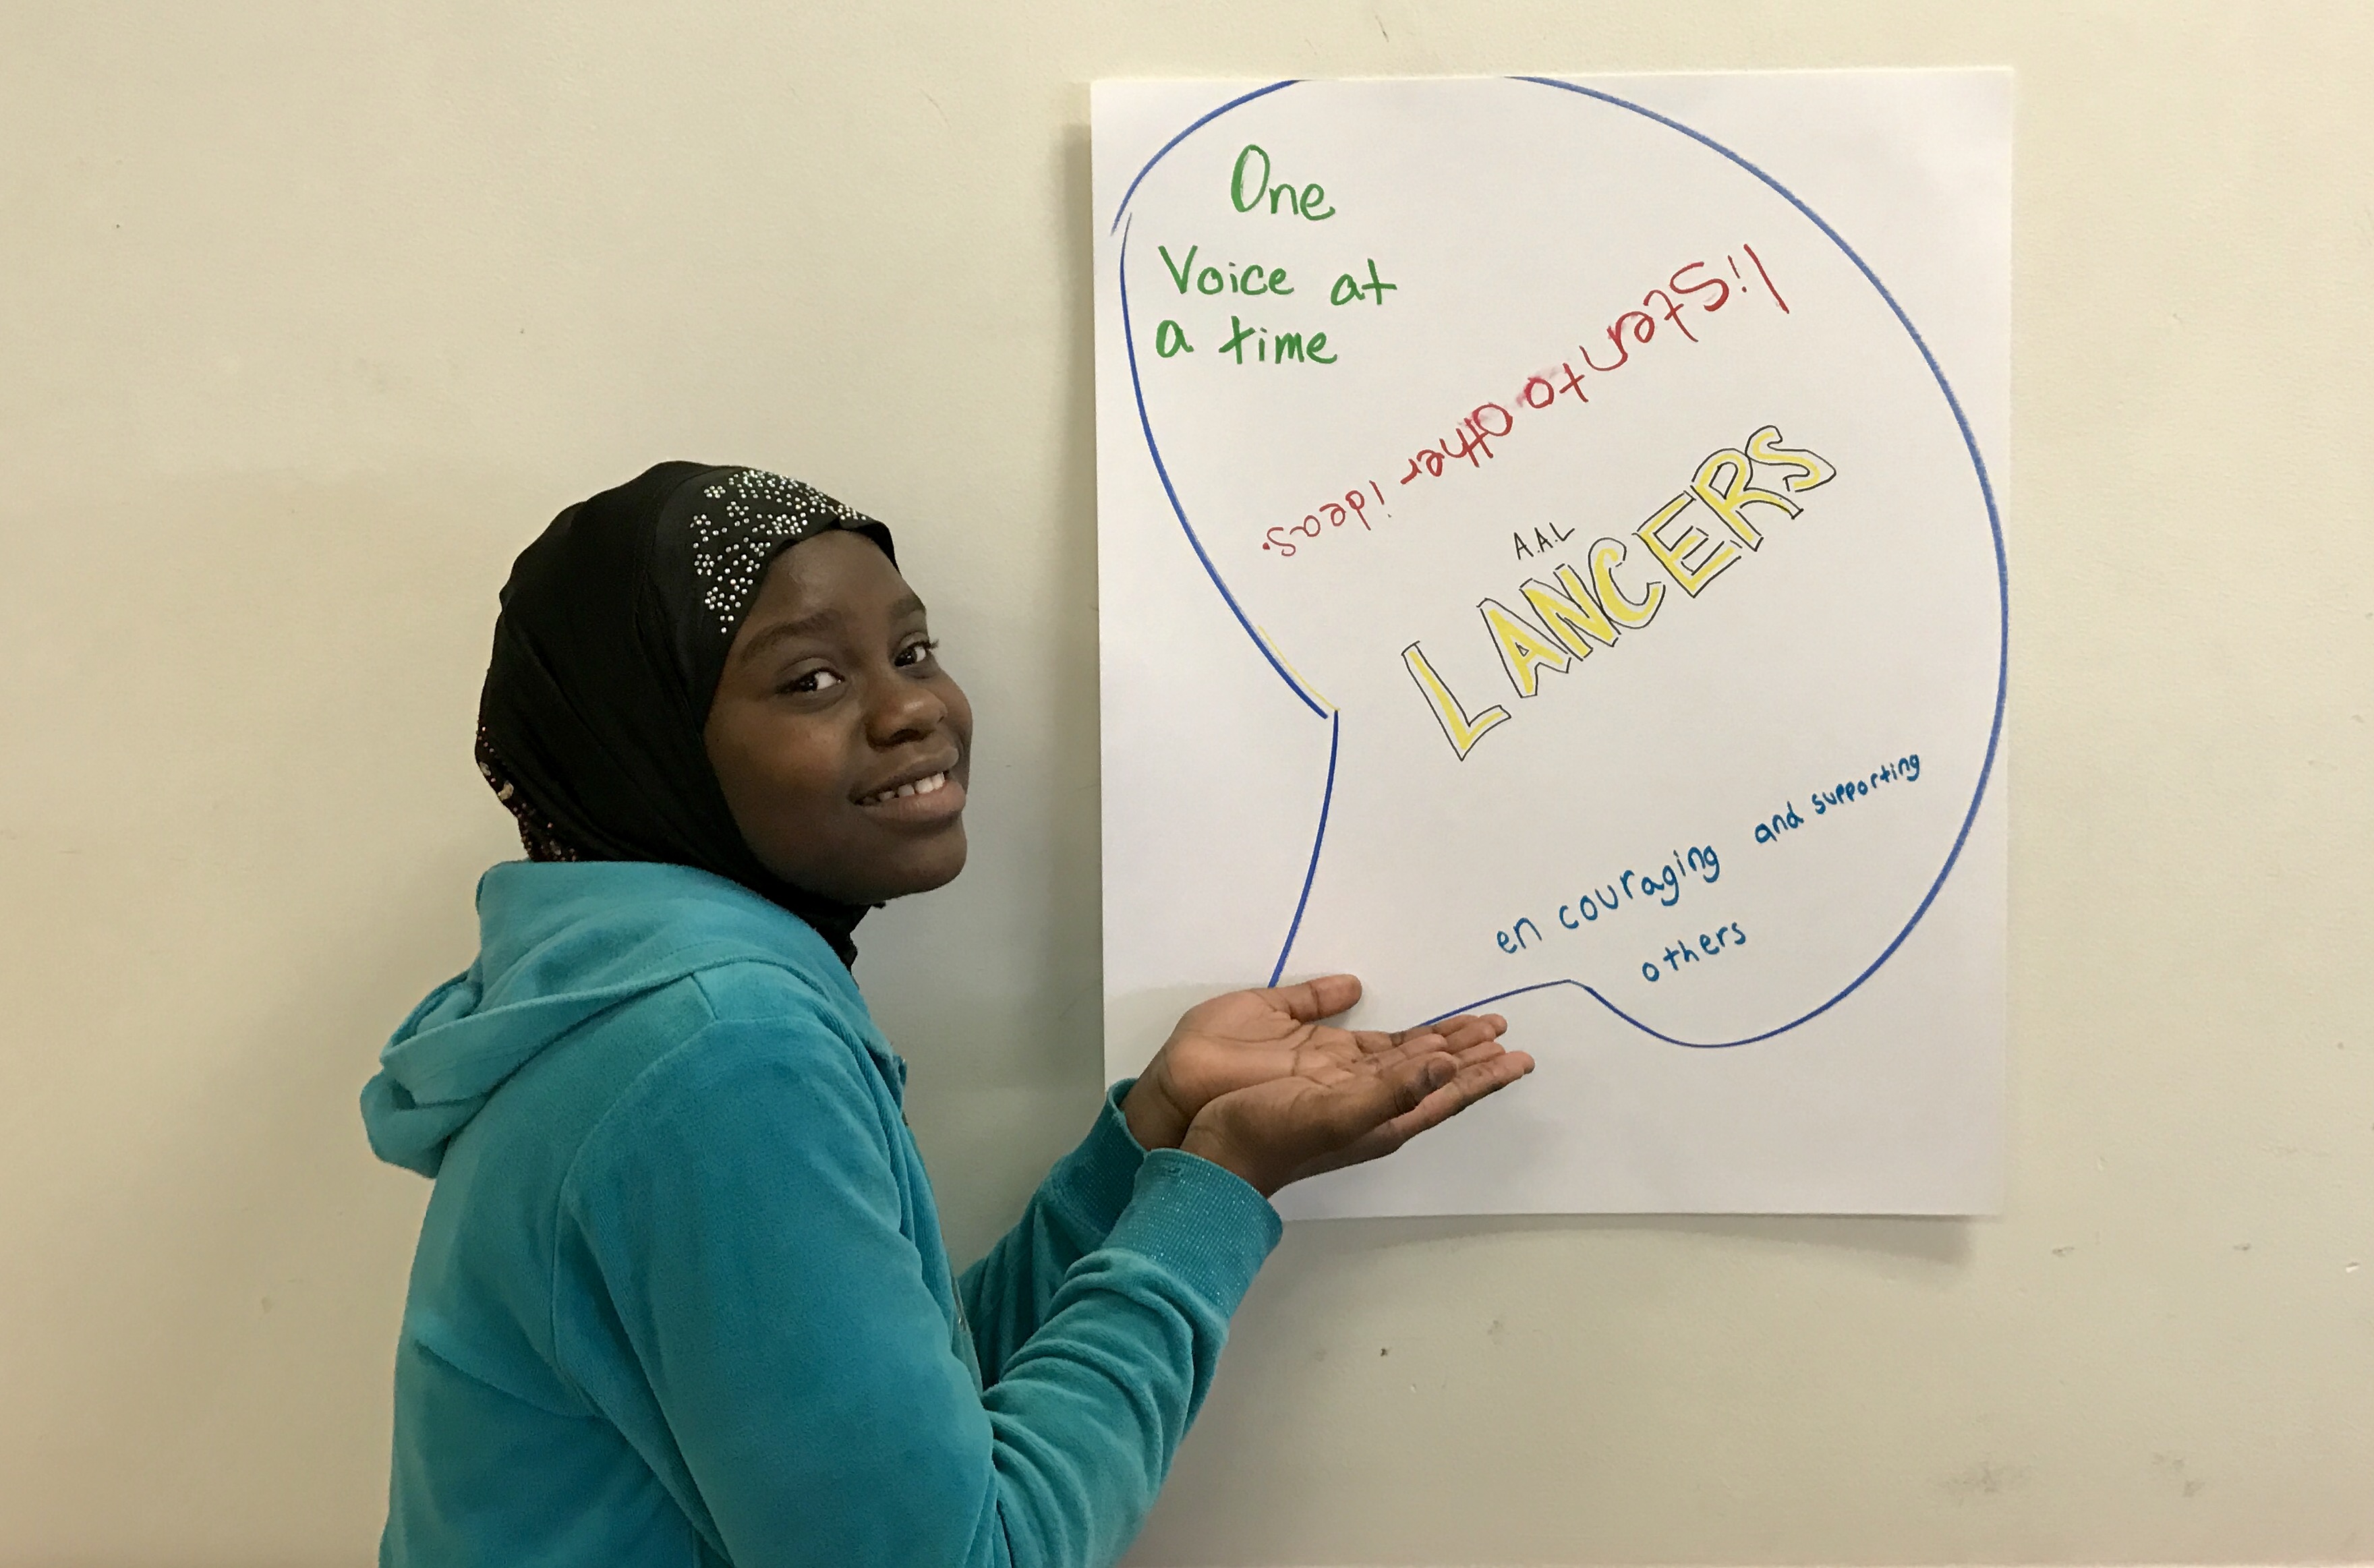 One
Voice at
a time
listen to other ideas.
A.A.L
LANCERS
en couraging and supporting
others